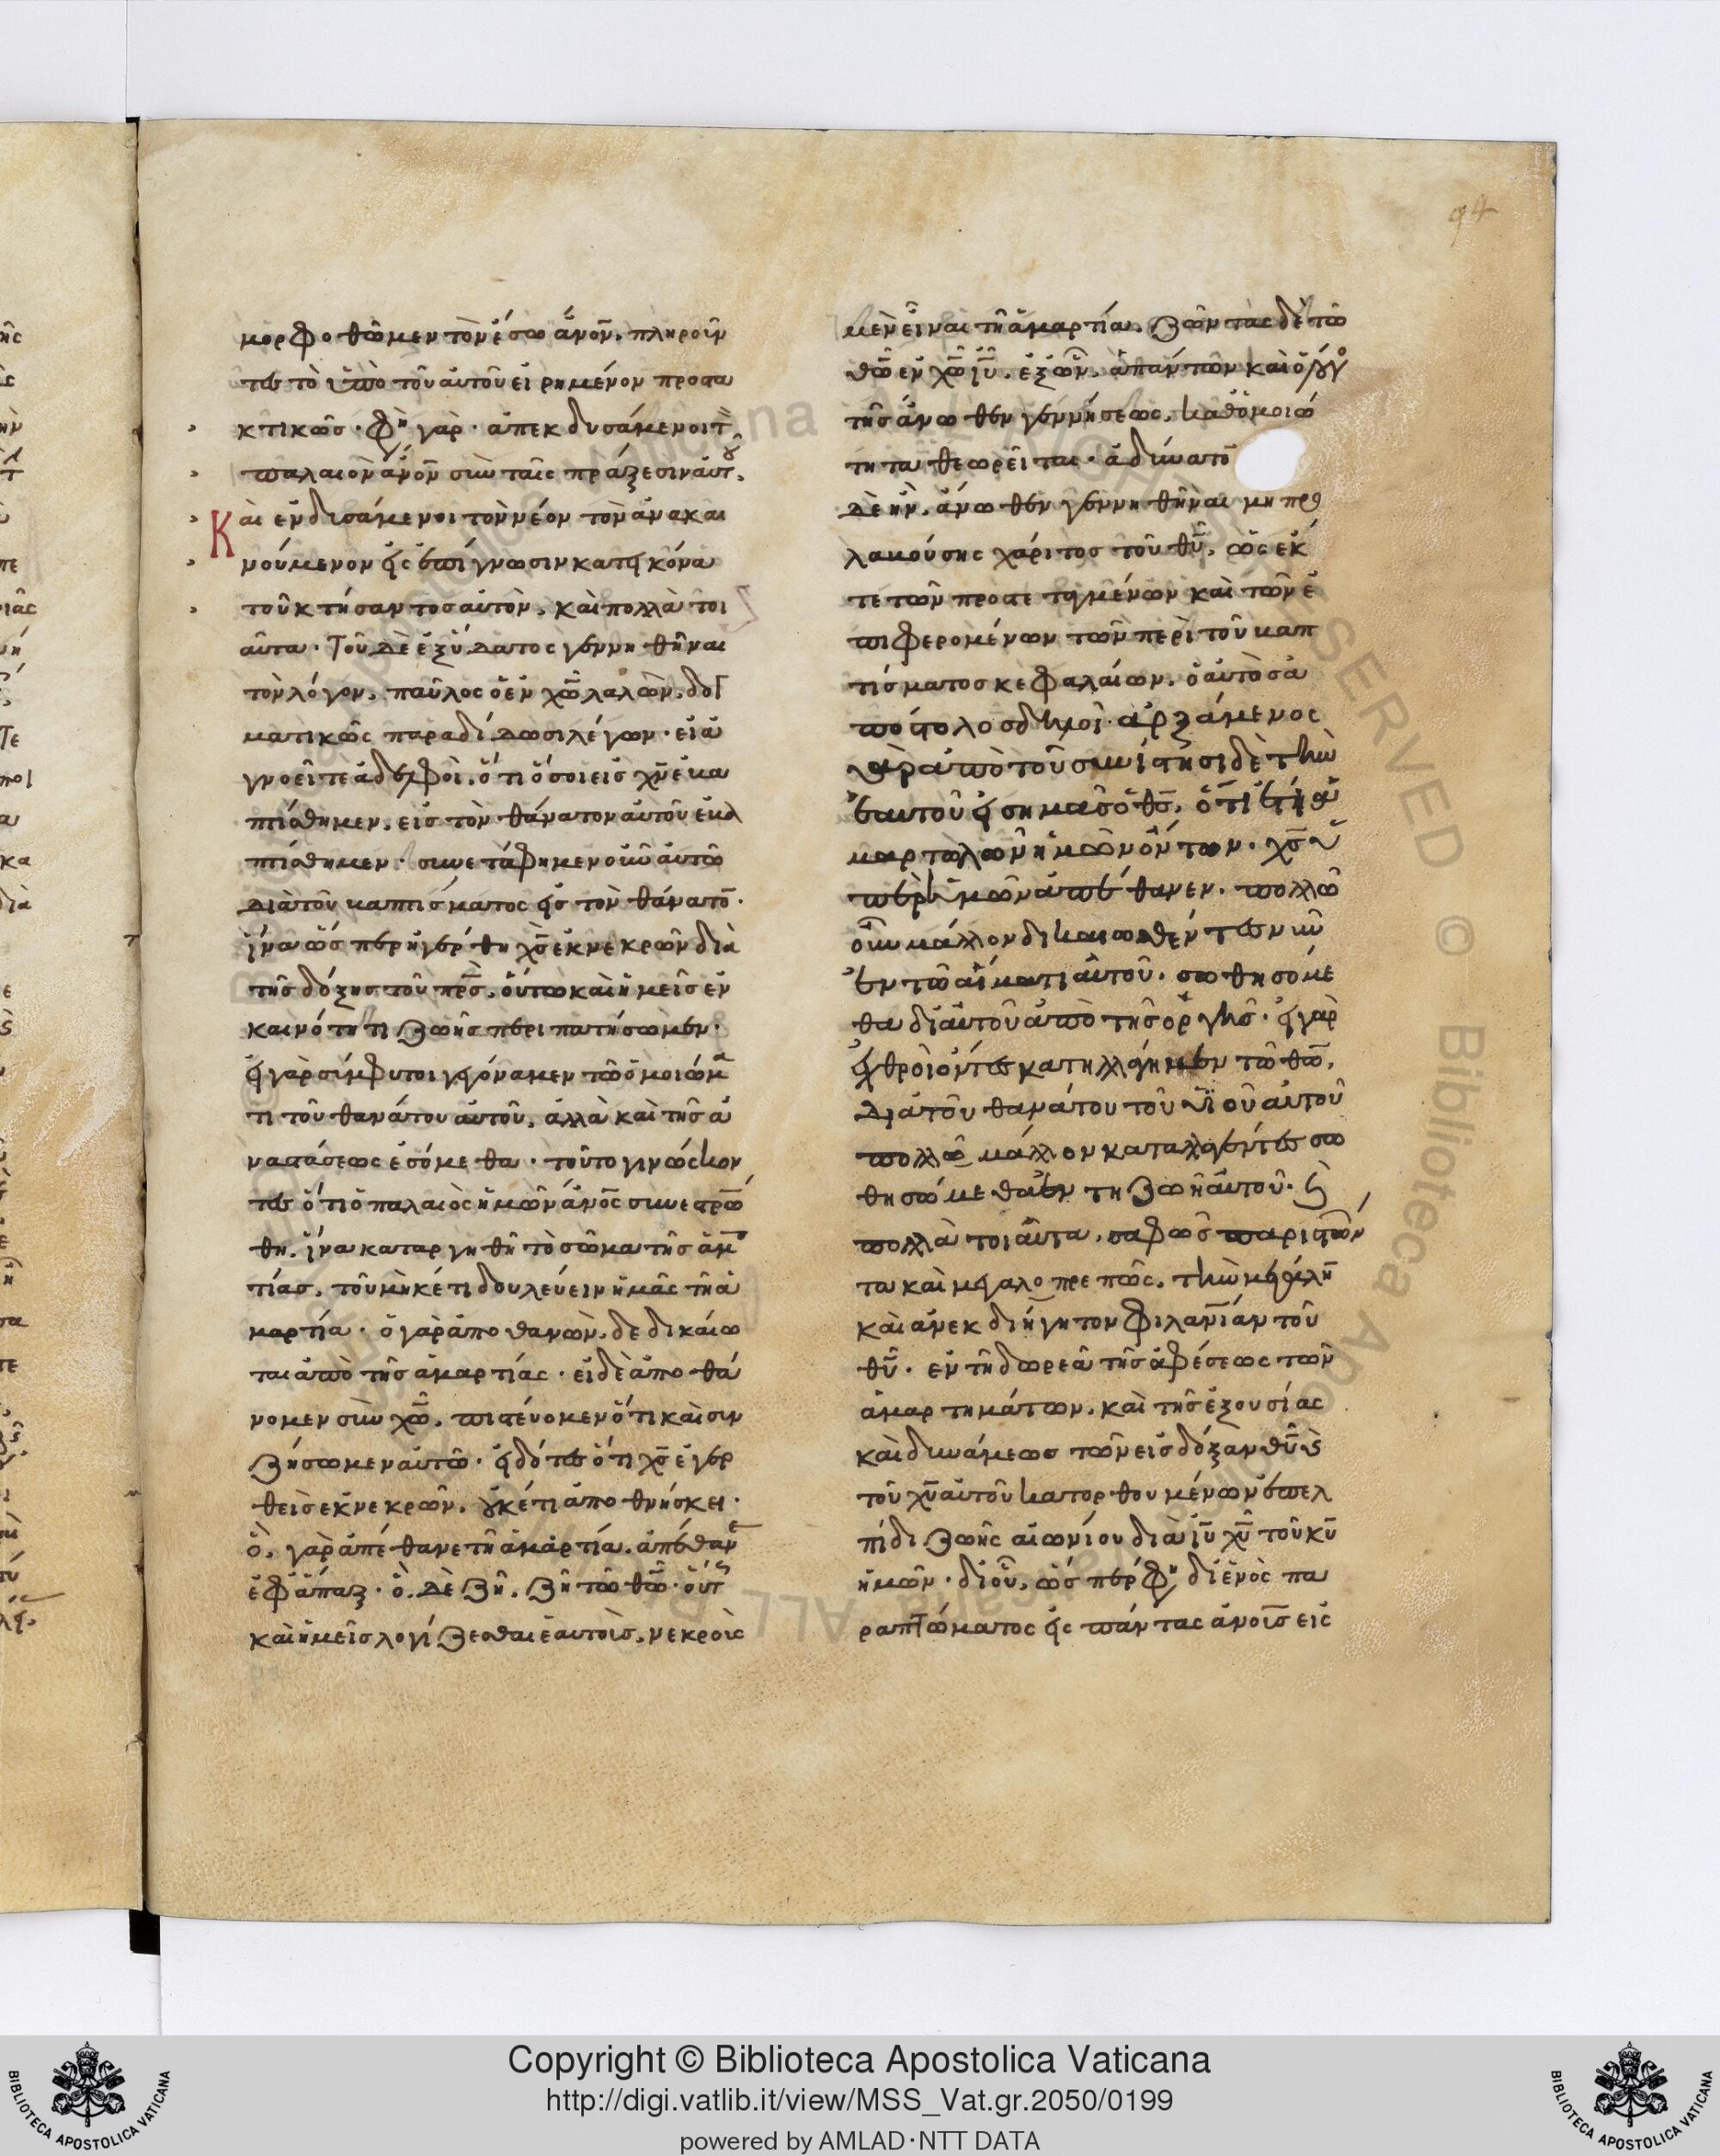 94
μορφοθῶμεν τὸν ἔσω ἄνον, πληροῦν
τες τὸ ὑπὸ τοῦ αὐτοῦ εἰρημένον προστα
κτικῶς· φη γάρ· ἀπεκδυσάμενοι τ
παλαιὸν ἄνον σὺν ταῖς πράξεσιν αὐτου,
Καὶ ἐνδυσάμενοι τὸν νέον τὸν ἀνακαι
νούμενον εἰς ἐπίγνωσιν κατ εἰκόνα
τοῦ κτήσαντος αὐτὸν, καὶ πολλὰ τοι
αῦτα· Τοῦ δὲ ἐξ ὕδατος γεννηθῆναι
τὸν λόγον, παῦλος ὁ ἐν χω λαλῶν, δογ
ματικῶς παραδίδωσι λέγων· εἰ ἀ
γνοεῖτε ἀδελφοὶ, ὅτι ὅσοι εἰς χν ἐβα
πτίσθημεν, εἰς τὸν θάνατον αὐτοῦ ἐβα
πτίσθημεν· συνετάφημεν οὖν αὐτῶ
διὰ τοῦ βαπτίσματος εἰς τὸν θάνατο·
ἵνα ὥσπερ ἠγέρθη χς ἐκ νεκρῶν διὰ
τῆς δόξης τοῦ πρς, οὕτω καὶ ἡμεῖς ἐν
καινότητι ζωῆς περιπατήσωμεν·
εἰ γὰρ σύμφυτοι γεγόναμεν τῶ ὁμοιώμα
τι τοῦ θανάτου αὐτοῦ, ἀλλὰ καὶ τῆς ἀ
ναστάσεως ἐσόμεθα· τοῦτο γινώσκον
τες ὅτι ὁ παλαιὸς ἡμῶν ἄνος συνεστρώ
θη, ἵνα καταργηθῆ τὸ σῶμα τῆς ἁμ
τίας, τοῦ μηκέτι δουλεύειν ἡμᾶς τῆ ἁ
μαρτία· ὁ γὰρ ἀποθανὼν, δεδικαίω
ται ἀπὸ τῆς ἁμαρτίας· εἰ δὲ ἀπεθά
νομεν σὺν χω, πιστεύομεν ὅτι καὶ συν
ζήσωμεν αὐτῶ· εἰδότες ὅτι χς ἐγερ
θεὶς ἐκ νεκρῶν, οὐκέτι ἀποθνήσκει·
ὃ, γὰρ ἀπέθανε τῆ ἁμαρτία, ἀπέθανε
ἐφάπαξ· ὃ, δὲ ζῆ, ζῆ τῶ θω· οὕτ
καὶ ἡμεῖς λογίζεσθαι ἑαυτοὺς, νεκροὺς
μὲν εἶναι τῆ ἁμαρτία, ζῶντας δὲ τῶ
θω ἐν χω ιυ, ἐξ ὧν, ἁπάντων καὶ ὁ λόγο
τῆς ἄνωθεν γεννήσεως, καθ ὁμοιό
τητα θεωρεῖται· ἀδύνατο
δὲ ἦν, ἄνωθεν γεννηθῆναι μὴ προ
λαβούσης χάριτος τοῦ θυ, ὡς ἔκ
τε τῶν προστεταγμένων καὶ τῶν ἐ
πιφερομένων τῶν περὶ τοῦ βαπ
τίσματος κεφαλαίων, ὁ αὐτὸς ἀ
πόστολος δηλοῖ· ἀρξάμενος
γὰρ ἀπὸ τοῦ συνίστησι δὲ τὴν
ἑαυτοῦ εἰς ἡμᾶς ὁ θς, ὅτι ἔτι ἁ
μαρτωλῶν ἡμῶν ὄντων, χς ὑ
πὲρ ἡμῶν ἀπέθανεν· πολλῶ
οὖν μᾶλλον δικαιωθέντες νῦν
ἐν τῶ αἵματι αὐτοῦ, σωθησόμε
θα δι αὐτοῦ ἀπὸ τῆς ὀργῆς· εἰ γὰρ
ἐχθροὶ ὄντες κατηλλάγημεν τῶ θω,
διὰ τοῦ θανάτου τοῦ υἱοῦ αὐτοῦ
πολλῶ μᾶλλον καταλλαγέντες σω
θησώμεθα ἐν τῆ ζωῆ αὐτοῦ· καὶ
πολλὰ τοιαῦτα, σαφῶς παριστῶν
τα καὶ μεγαλοπρεπῶς, τὴν μεγάλη
καὶ ἀνεκδιήγητον φιλανίαν τοῦ
θυ· ἐν τῆ δωρεᾶ τῆς ἀφέσεως τῶν
ἁμαρτημάτων, καὶ τῆς ἐξουσίας
καὶ δυνάμεως τῶν εἰς δόξαν θυ καὶ
τοῦ χυ αὐτοῦ κατορθουμένων ἐπ ελ
πίδι ζωῆς αἰωνίου διὰ ιυ χυ τοῦ κυ
ἡμῶν· δι οὗ, ὥσπερ φη, δι ἑνὸς πα
ραπτώματος εἰς πάντας ἀνοις εἰς
Copyright © Biblioteca Apostolica Vaticana
http://digi.vatlib.it/view/MSS_Vat.gr.2050/0199
powered by AMLAD·NTT DATA
BIBLIOTECA APOSTOLICA VATICANA
BIBLIOTECA APOSTOLICA VATICANA